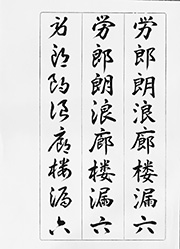 労郎朗浪廊楼漏六
労郎朗浪廊楼漏六
労郎朗浪廊楼漏六